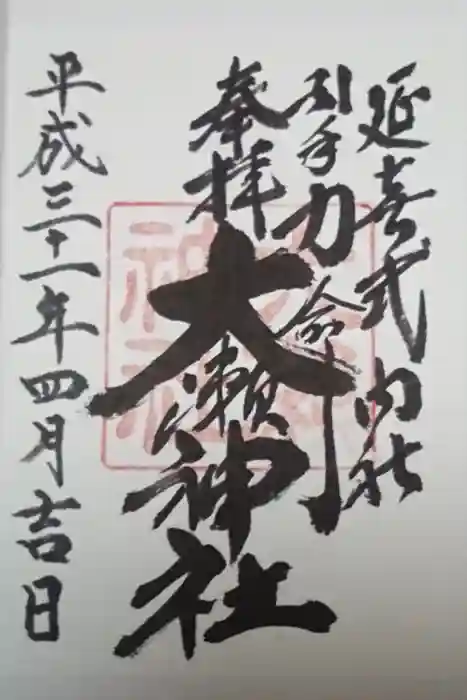 延喜式内社
引手力命
奉拝
大瀬神社
平成三十一年四月吉日